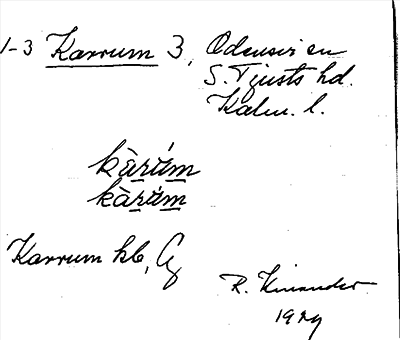 1-3 Karrum 3, Odensvi sn
S. Tjusts hd.
Kalm. l.
kàrúm
kàrúm
Karrum hb,
R. Kinander
1929